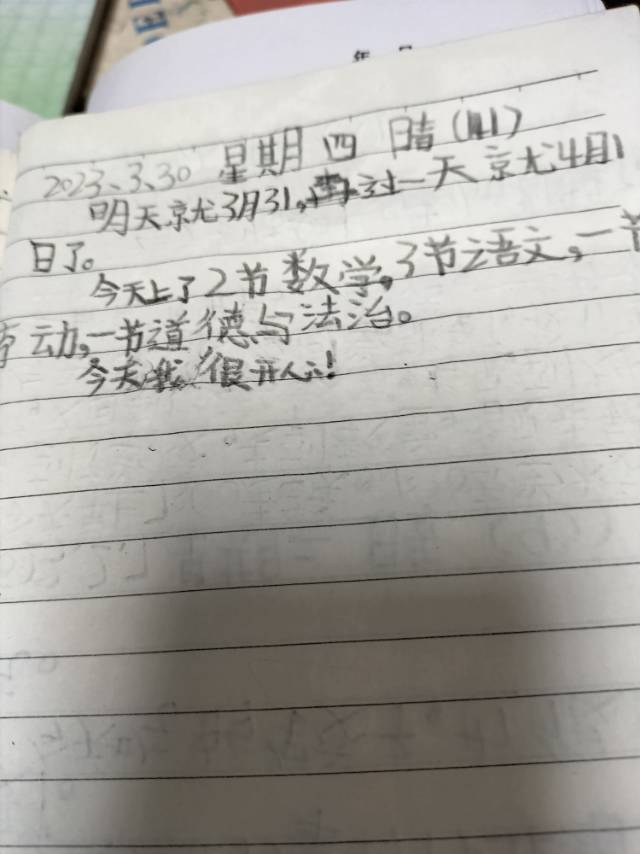 年 月
2023、3、30 星期四 晴(141)
明天就3月31,再过一天就4月1
日了。
今天上了2节数学,3节语文,一节
劳动,一节道德与法治。
今天我很开心!